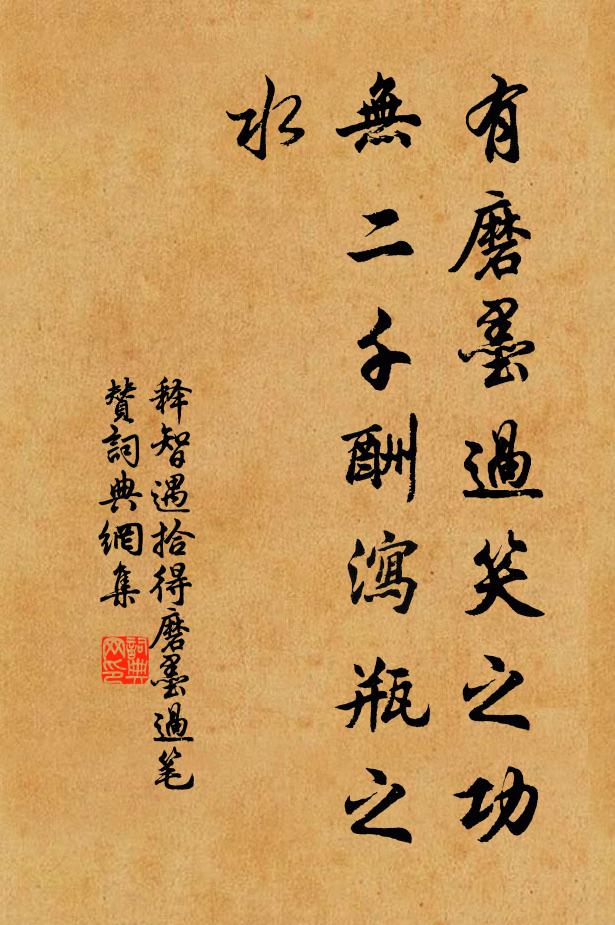 有磨墨過笑之功
無二千酬瀉瓶之
水
释智遇拾得磨墨過笔
贊詞典網集
詞典网印